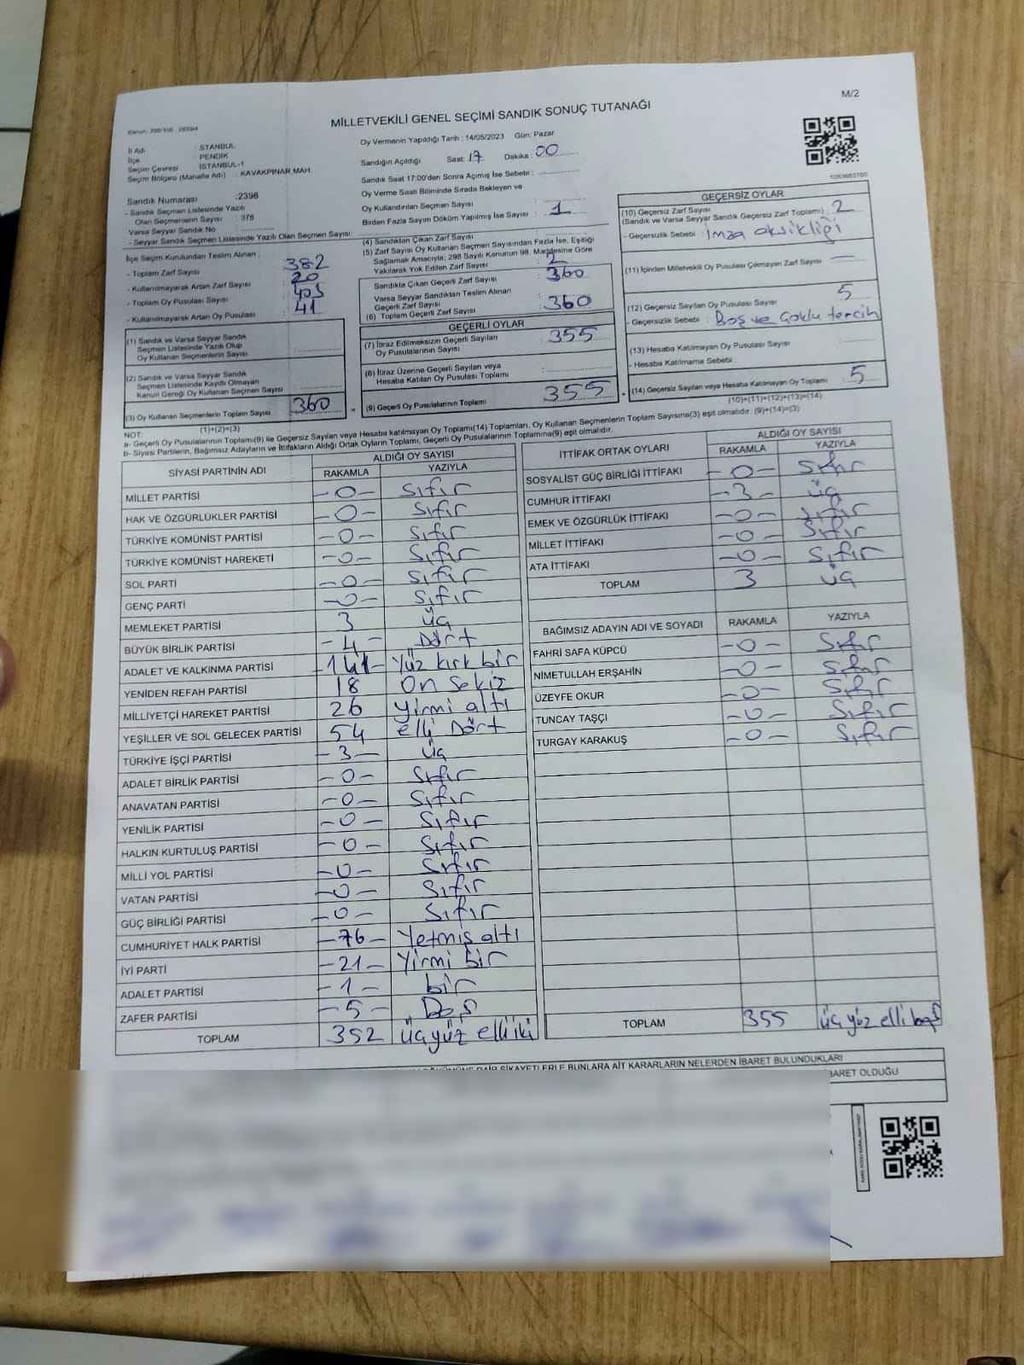 M/2
MİLLETVEKİLİ GENEL SEÇİMİ SANDIK SONUÇ TUTANAĞI
İl Adı : İSTANBUL
İlçe : PENDİK
Seçim Çevresi : İSTANBUL-1
Seçim Bölgesi (Mahalle Adı) : KAVAKPINAR MAH.
Oy Vermenin Yapıldığı Tarih : 14/05/2023 Gün: Pazar
Sandığın Açıldığı Saat: 17 Dakika: 00
Sandık Saat 17:00'den Sonra Açılmış İse Sebebi :
Oy Verme Saati Bitiminde Sırada Bekleyen ve
Oy Kullandırılan Seçmen Sayısı :
Birden Fazla Sayım Döküm Yapılmış İse Sayısı : 1
Sandık Numarası :2396
- Sandık Seçmen Listesinde Yazılı
Olan Seçmenlerin Sayısı : 376
Varsa Seyyar Sandık No :
- Seyyar Sandık Seçmen Listesinde Yazılı Olan Seçmen Sayısı:
İlçe Seçim Kurulundan Teslim Alınan :
- Toplam Zarf Sayısı : 382
- Kullanılmayarak Artan Zarf Sayısı : 20
- Toplam Oy Pusulası Sayısı :
- Kullanılmayarak Artan Oy Pusulası : 41
(1) Sandık ve Varsa Seyyar Sandık
Seçmen Listesinde Yazılı Olup
Oy Kullanan Seçmenlerin Sayısı :
(2) Sandık ve Varsa Seyyar Sandık
Seçmen Listesinde Kaydı Olmayan
Kanun Gereği Oy Kullanan Seçmen Sayısı :
(3) Oy Kullanan Seçmenlerin Toplam Sayısı 360
(1)+(2)=(3)
(4) Sandıktan Çıkan Zarf Sayısı :
(5) Zarf Sayısı Oy Kullanan Seçmen Sayısından Fazla İse, Eşitliği
Sağlamak Amacıyla; 298 Sayılı Kanunun 98. Maddesine Göre
Yakılarak Yok Edilen Zarf Sayısı : 2
Sandıkta Çıkan Geçerli Zarf Sayısı : 360
Varsa Seyyar Sandıktan Teslim Alınan
Geçerli Zarf Sayısı :
(6) Toplam Geçerli Zarf Sayısı : 360
GEÇERLİ OYLAR
(7) İtiraz Edilmeksizin Geçerli Sayılan
Oy Pusulalarının Sayısı : 355
(8) İtiraz Üzerine Geçerli Sayılan veya
Hesaba Katılan Oy Pusulası Toplamı :
(9) Geçerli Oy Pusulalarının Toplamı : 355
GEÇERSİZ OYLAR
(10) Geçersiz Zarf Sayısı
(Sandık ve Varsa Seyyar Sandık Geçersiz Zarf Toplamı) : 2
- Geçersizlik Sebebi : İmza eksikliği
(11) İçinden Milletvekili Oy Pusulası Çıkmayan Zarf Sayısı : —
(12) Geçersiz Sayılan Oy Pusulası Sayısı : 5
- Geçersizlik Sebebi : Boş ve Çoklu tercih
(13) Hesaba Katılmayan Oy Pusulası Sayısı :
- Hesaba Katılmama Sebebi :
(14) Geçersiz Sayılan veya Hesaba Katılmayan Oy Toplamı : 5
(10)+(11)+(12)+(13)=(14)
NOT:
a- Geçerli Oy Pusulalarının Toplamı(9) ile Geçersiz Sayılan veya Hesaba Katılmayan Oy Toplamı(14) Toplamları, Oy Kullanan Seçmenlerin Toplam Sayısına(3) eşit olmalıdır. (9)+(14)=(3)
b- Siyasi Partilerin, Bağımsız Adayların ve İttifakların Aldığı Ortak Oyların Toplamı, Geçerli Oy Pusulalarının Toplamına(9) eşit olmalıdır.
SİYASİ PARTİNİN ADI ALDIĞI OY SAYISI
RAKAMLA YAZIYLA
MİLLET PARTİSİ -0- Sıfır
HAK VE ÖZGÜRLÜKLER PARTİSİ -0- Sıfır
TÜRKİYE KOMÜNİST PARTİSİ -0- Sıfır
TÜRKİYE KOMÜNİST HAREKETİ -0- Sıfır
SOL PARTİ -0- Sıfır
GENÇ PARTİ -0- Sıfır
MEMLEKET PARTİSİ 3 üç
BÜYÜK BİRLİK PARTİSİ -4- Dört
ADALET VE KALKINMA PARTİSİ -141- Yüz kırk bir
YENİDEN REFAH PARTİSİ 18 On Sekiz
MİLLİYETÇİ HAREKET PARTİSİ 26 Yirmi altı
YEŞİLLER VE SOL GELECEK PARTİSİ 54 elli Dört
TÜRKİYE İŞÇİ PARTİSİ -3- üç
ADALET BİRLİK PARTİSİ -0- Sıfır
ANAVATAN PARTİSİ -0- Sıfır
YENİLİK PARTİSİ -0- Sıfır
HALKIN KURTULUŞ PARTİSİ -0- Sıfır
MİLLİ YOL PARTİSİ -0- Sıfır
VATAN PARTİSİ -0- Sıfır
GÜÇ BİRLİĞİ PARTİSİ -0- Sıfır
CUMHURİYET HALK PARTİSİ -76- Yetmiş altı
İYİ PARTİ -21- Yirmi bir
ADALET PARTİSİ -1- bir
ZAFER PARTİSİ -5- Beş
TOPLAM 352 üçyüz elli iki
İTTİFAK ORTAK OYLARI ALDIĞI OY SAYISI
RAKAMLA YAZIYLA
SOSYALİST GÜÇ BİRLİĞİ İTTİFAKI -0- Sıfır
CUMHUR İTTİFAKI -3- üç
EMEK VE ÖZGÜRLÜK İTTİFAKI -0- Sıfır
MİLLET İTTİFAKI -0- Sıfır
ATA İTTİFAKI -0- Sıfır
TOPLAM 3 üç
BAĞIMSIZ ADAYIN ADI VE SOYADI RAKAMLA YAZIYLA
FAHRİ SAFA KÜPCÜ -0- Sıfır
NİMETULLAH ERŞAHİN -0- Sıfır
ÜZEYFE OKUR -0- Sıfır
TUNCAY TAŞÇI -0- Sıfır
TURGAY KARAKUŞ -0- Sıfır
TOPLAM 355 üçyüz elli beş
ŞİKAYETLERLE BUNLARA AİT KARARLARIN NELERDEN İBARET BULUNDUKLARI
OLDUĞU